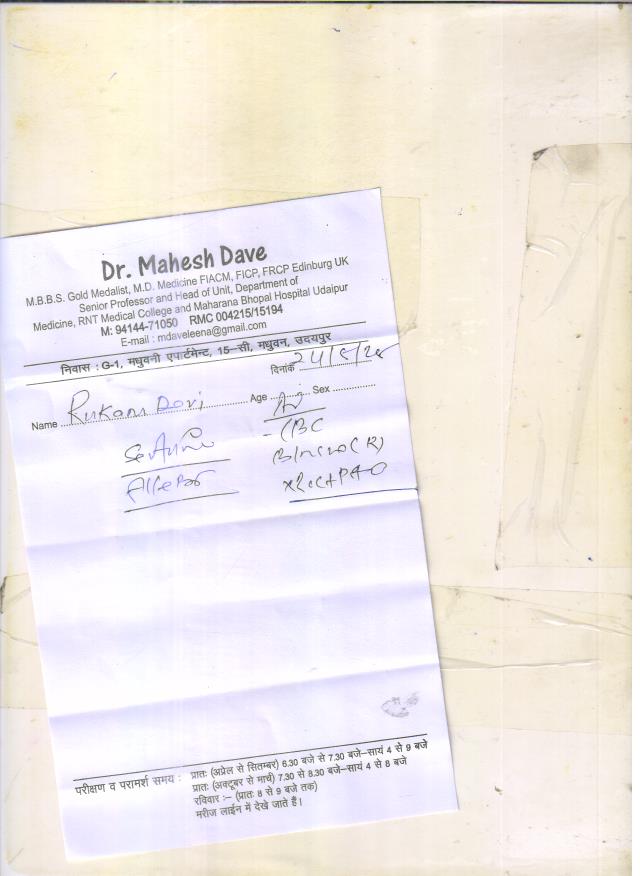 Dr. Mahesh Dave
M.B.B.S. Gold Medalist, M.D. Medicine FIACM, FICP, FRCP Edinburg UK
Senior Professor and Head of Unit, Department of
Medicine, RNT Medical College and Maharana Bhopal Hospital Udaipur
M: 94144-71050 RMC 004215/15194
E-mail : mdaveleena@gmail.com
निवास : G-1, मधुवनी एपार्टमेन्ट, 15-सी, मधुवन, उदयपुर
दिनांक
Name Rukam Devi Age Sex
CBC
परीक्षण व परामर्श समय : प्रातः (अप्रेल से सितम्बर) 6.30 बजे से 7.30 बजे-सायं 4 से 9 बजे
प्रातः (अक्टूबर से मार्च) 7.30 से 8.30 बजे-सायं 4 से 8 बजे
रविवार :- (प्रातः 8 से 9 बजे तक)
मरीज लाईन में देखे जाते हैं।